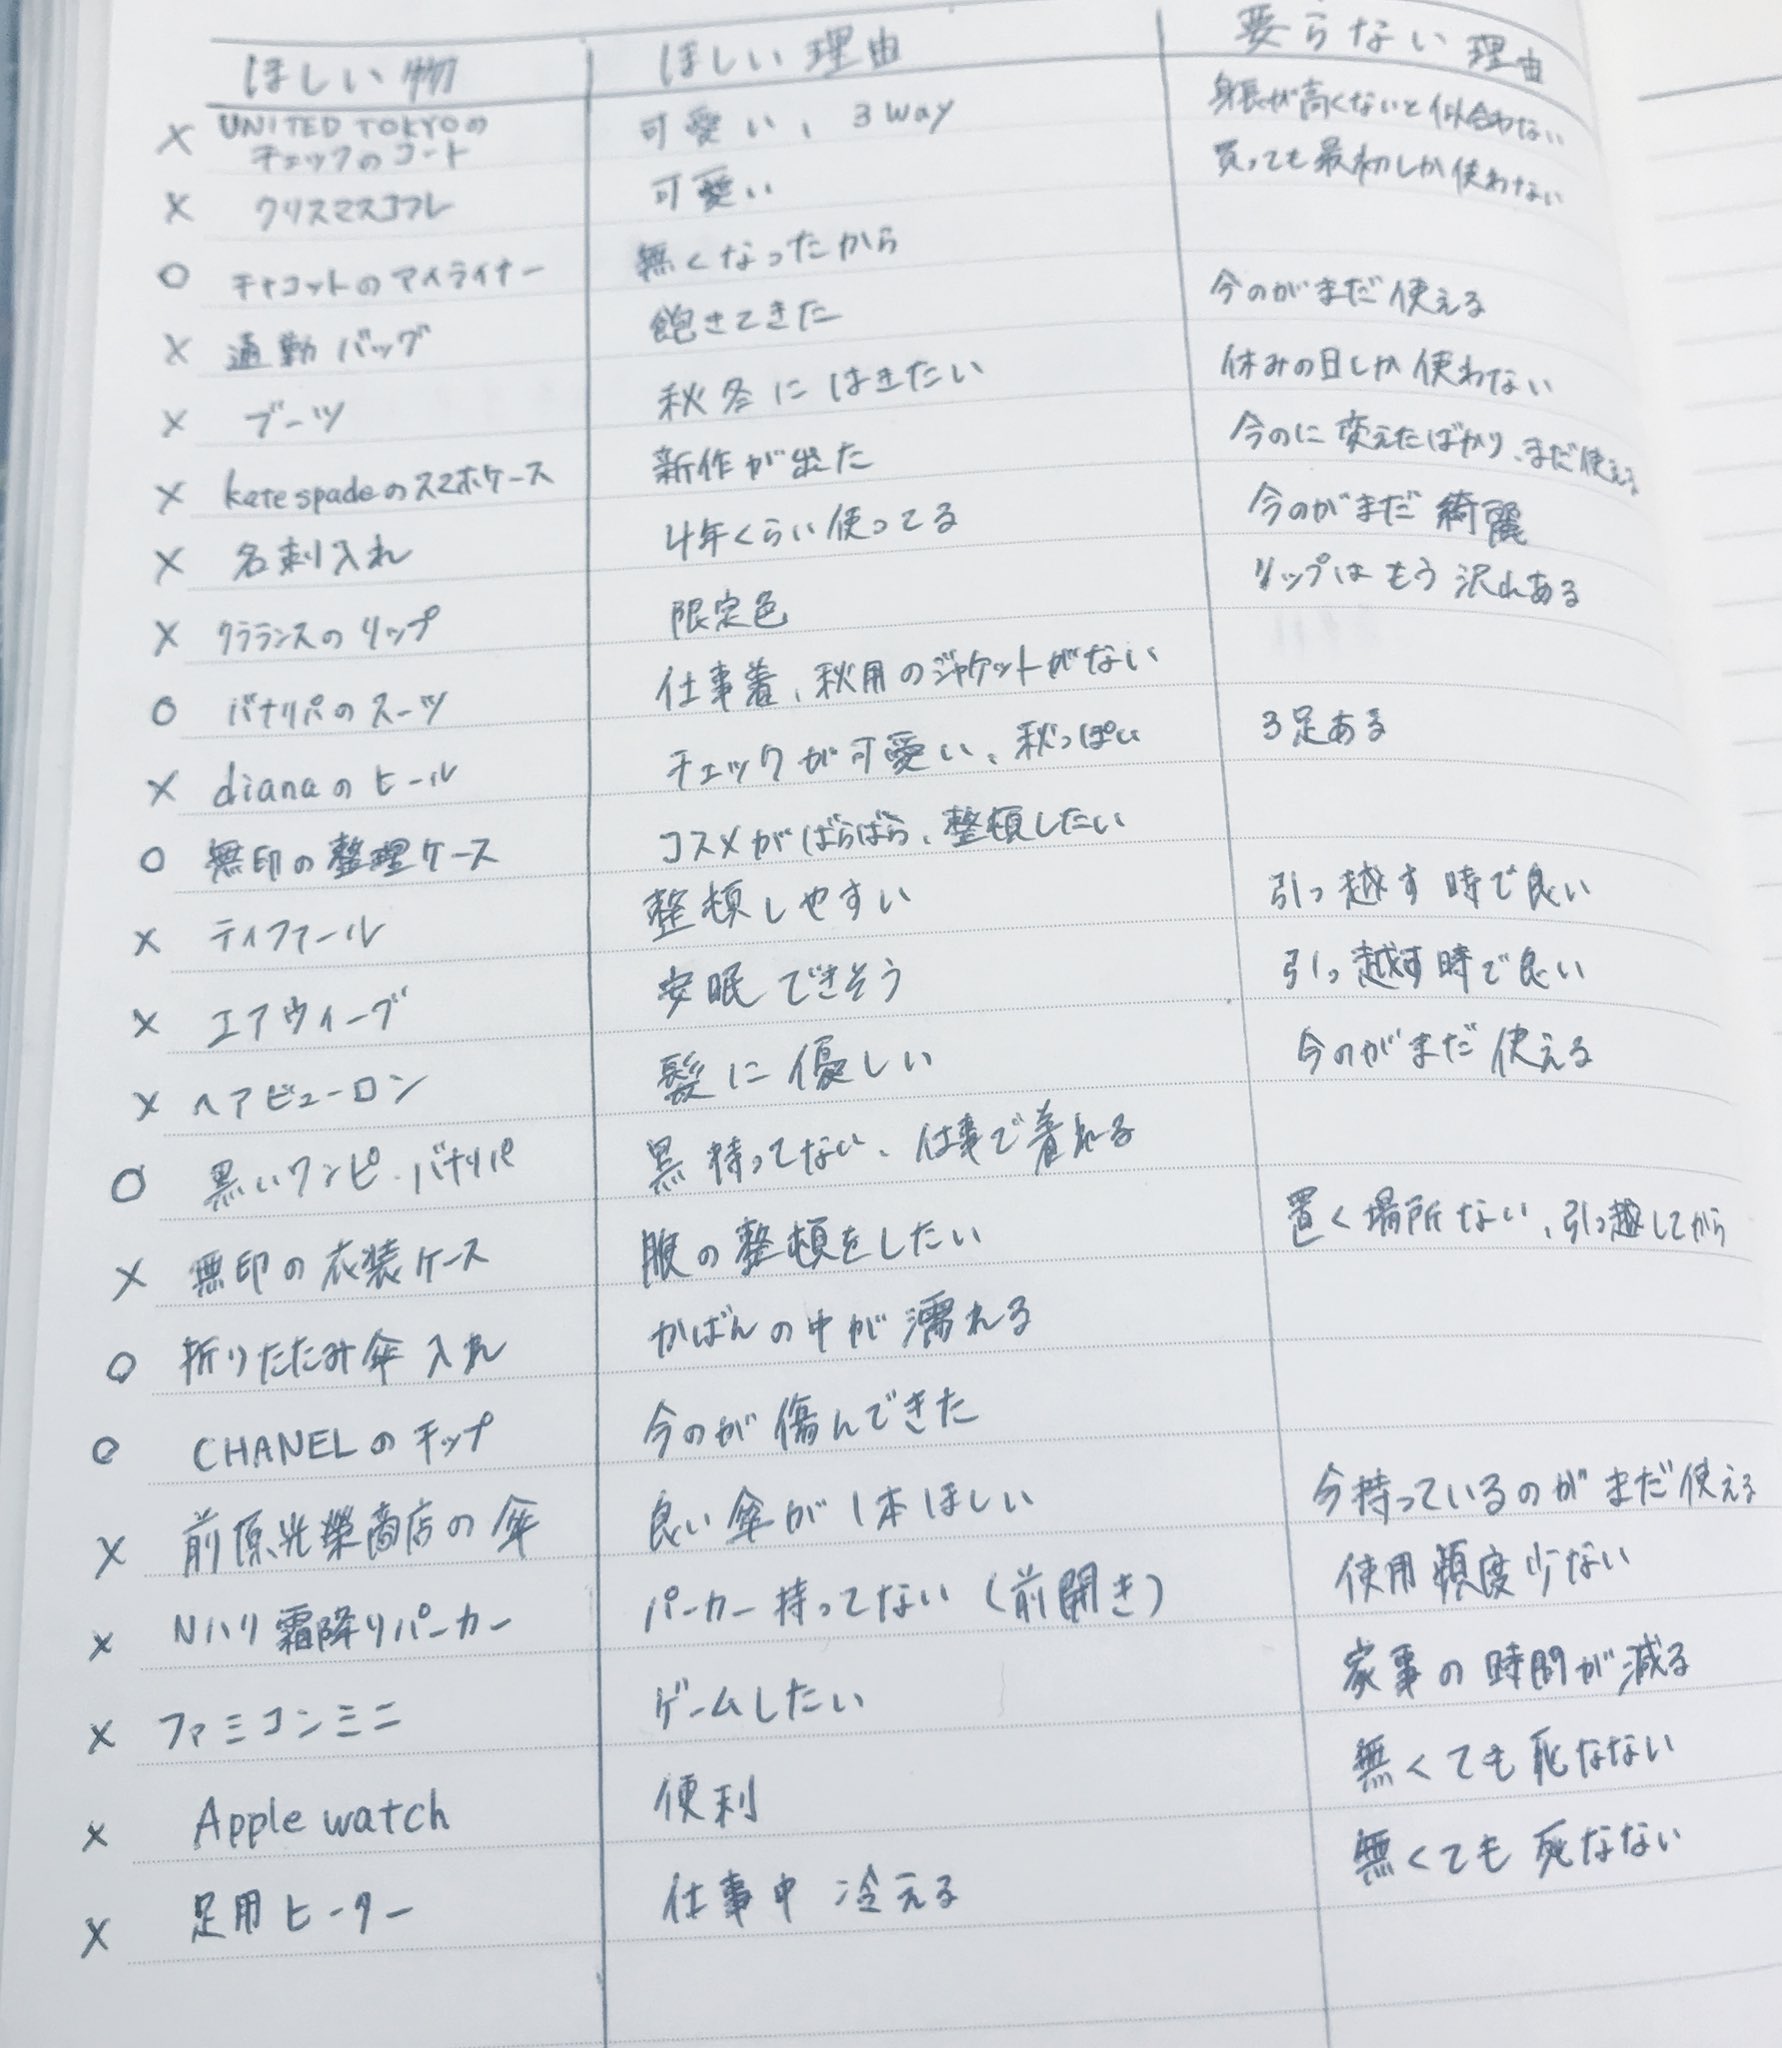 ほしい物 ほしい理由 要らない理由
× UNITED TOKYOの
チェックのコート 可愛い、3way 身長が高くないと似合わない
× クリスマスコフレ 可愛い 買っても最初しか使わない
○ チャコットのアイライナー 無くなったから
× 通勤バッグ 飽きてきた 今のがまだ使える
× ブーツ 秋冬にはきたい 休みの日しか使わない
× kate spadeのスマホケース 新作が出た 今のに変えたばかり、まだ使える
× 名刺入れ 4年くらい使ってる 今のがまだ綺麗
× クラランスのリップ 限定色 リップはもう沢山ある
○ バナリパのスーツ 仕事着、秋用のジャケットがない
× dianaのヒール チェックが可愛い、秋っぽい 3足ある
○ 無印の整理ケース コスメがばらばら、整頓したい
× ティファール 整頓しやすい 引っ越す時で良い
× エアウィーブ 安眠できそう 引っ越す時で良い
× ヘアビューロン 髪に優しい 今のがまだ使える
○ 黒いワンピ・バナリパ 黒持ってない、仕事で着れる
× 無印の衣装ケース 服の整頓をしたい 置く場所ない、引っ越してから
○ 折りたたみ傘入れ かばんの中が濡れる
○ CHANELのチップ 今のが傷んできた
× 前原光榮商店の傘 良い傘が1本ほしい 今持っているのがまだ使える
× Nハリ霜降りパーカー パーカー持ってない(前開き) 使用頻度少ない
× ファミコンミニ ゲームしたい 家事の時間が減る
× Apple watch 便利 無くても死なない
× 足用ヒーター 仕事中冷える 無くても死なない